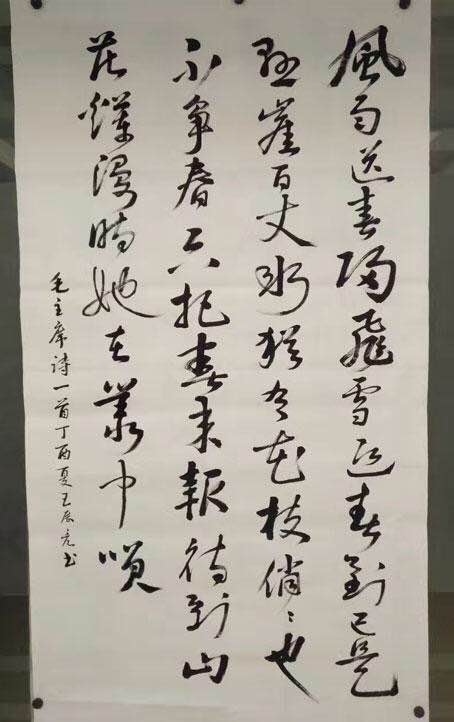 風雨送春歸飛雪迎春到已是
懸崖百丈冰猶有花枝俏〻也
不爭春只把春來報待到山
花爛漫時她在叢中咲
毛主席诗一首丁酉夏王辰书